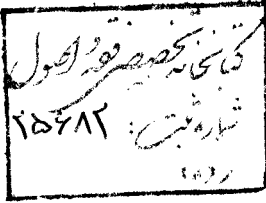 کتابخانه تخصصی فقه و اصول
شماره ثبت: ۲۵۶۸۲